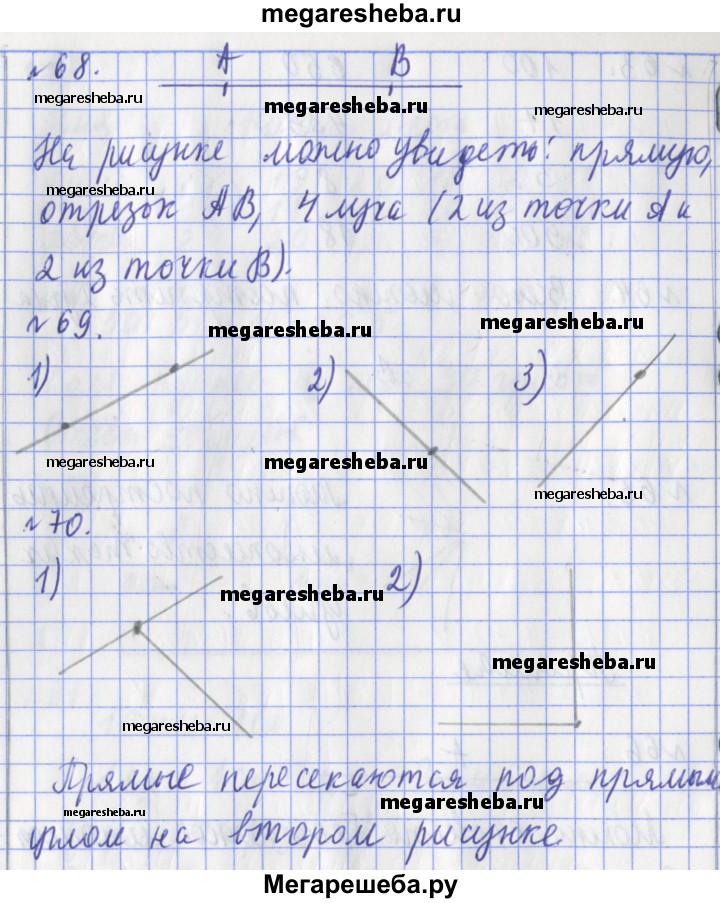 megaresheba.ru
№68. A B
megaresheba.ru megaresheba.ru megaresheba.ru
На рисунке можно увидеть: прямую,
megaresheba.ru
отрезок АВ, 4 луча (2 из точки А и
2 из точки В).
№69.
megaresheba.ru megaresheba.ru
1) 2) 3)
megaresheba.ru megaresheba.ru
megaresheba.ru
№70.
1) 2)
megaresheba.ru
megaresheba.ru
megaresheba.ru
Прямые пересекаются под прямым
megaresheba.ru megaresheba.ru
углом на втором рисунке.
Мегарешеба.ру